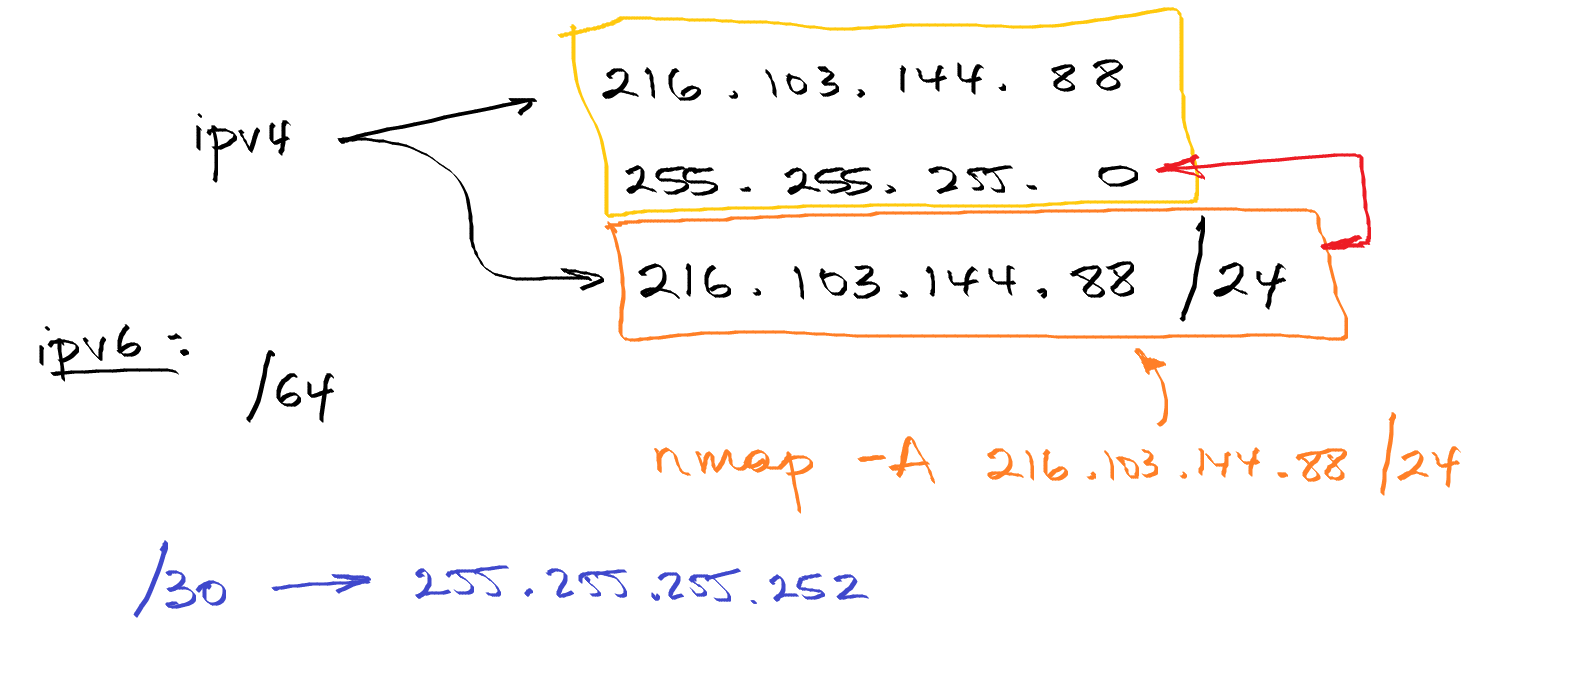 216.103.144.88
ipv4
255.255.255.0
216.103.144.88 /24
ipv6:
/64
nmap -A 216.103.144.88 /24
/30 → 255.255.255.252